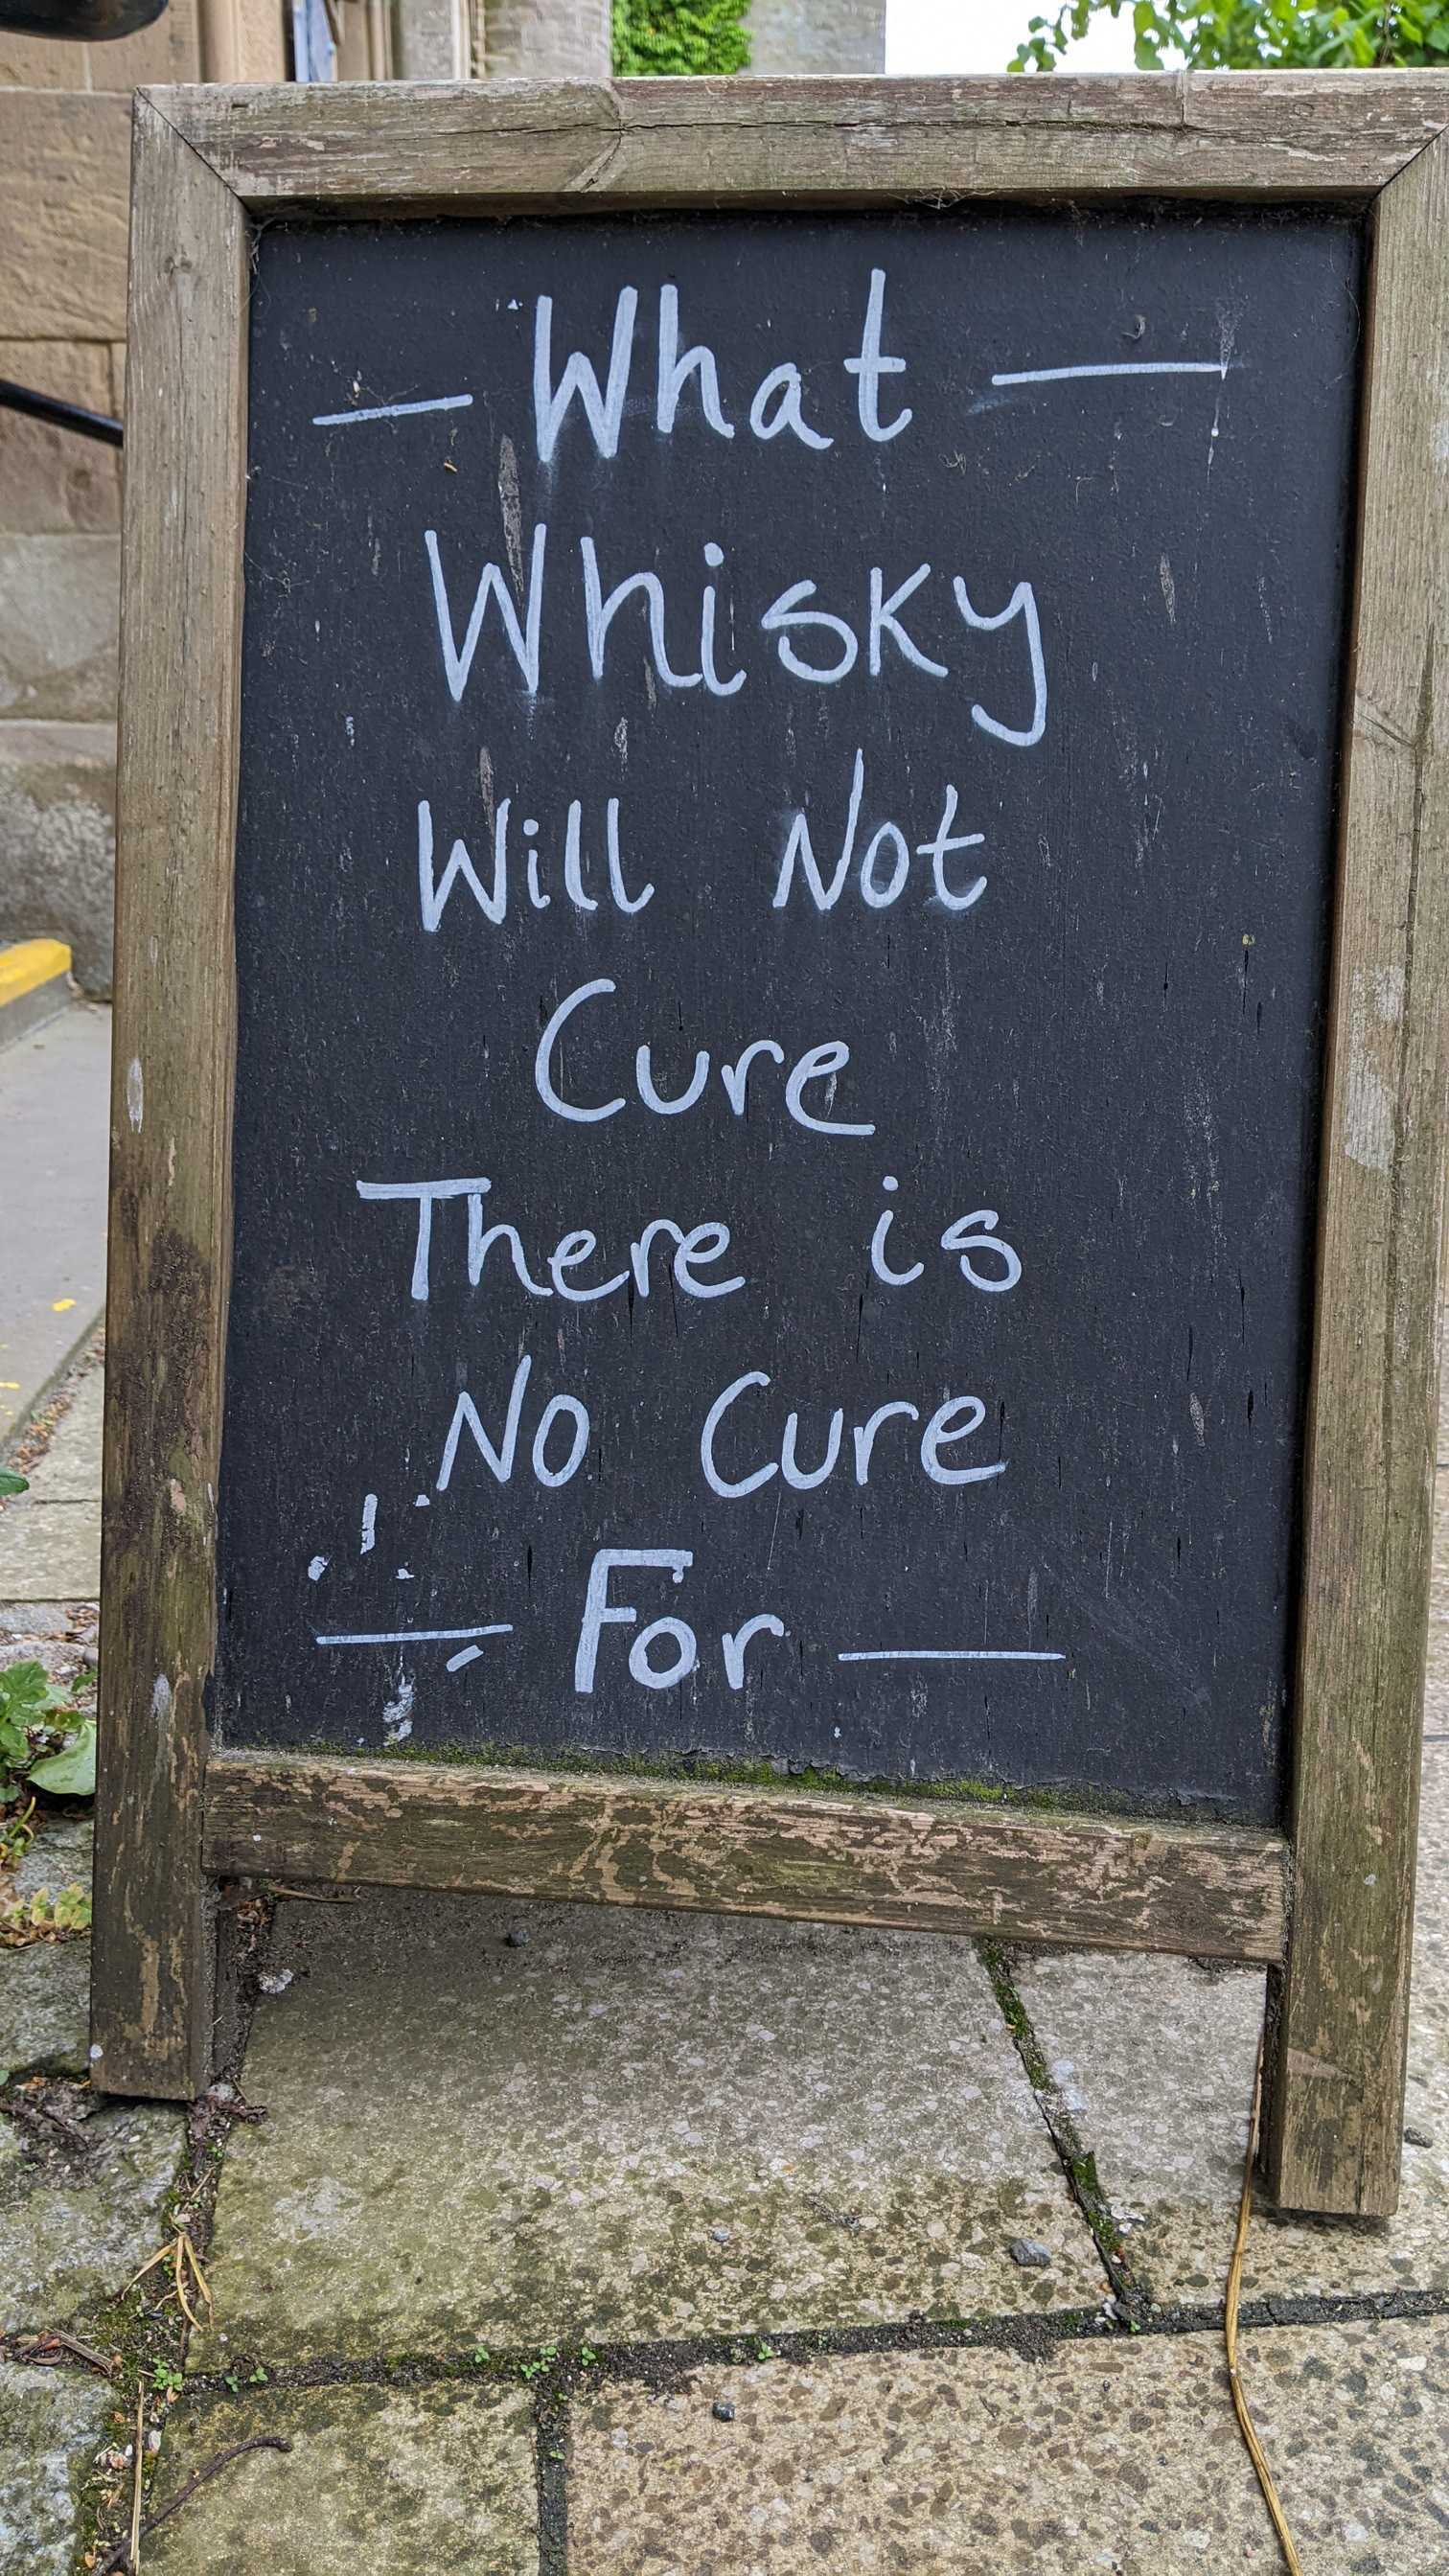 — What —
Whisky
Will Not
Cure
There is
No Cure
— For —